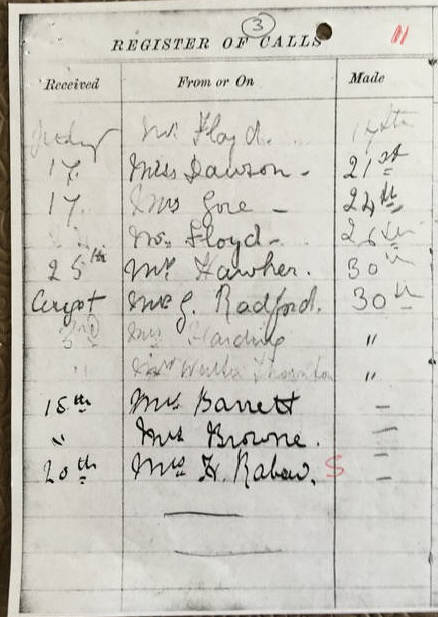 3
REGISTER OF CALLS
Received From or On Made
Floyd. 17th
17. Miss Dawson - 21st
17. Mrs Gore - 24th
Mrs. Floyd - 26th
25th Mrs Hawker. 30th
August Mrs G. Radford. 30th
3rd Mrs Harding "
" Mrs Walter Thornton "
18th Mrs. Barrett -
" Mrs Browne. -
20th Mrs H. Rabew. S -